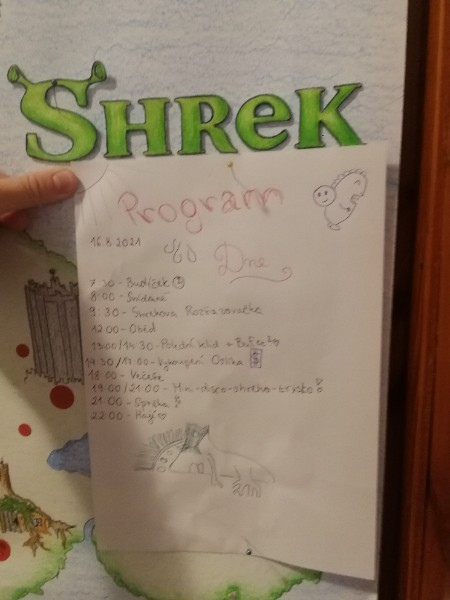 SHREK
Program
16.8.2021
Dne
7:30 - Budíček
8:00 - Snídaně
9:30 - Smrkova Rozřazovačka
12:00 - Oběd
13:00/14:30 - Polední klid +
14:30/17:00 - Vykoupení Oslíka
18:00 - Večeře
19:00/21:00 - Mini-disco-shreko-triako
21:00 - Sprcha
22:00 -